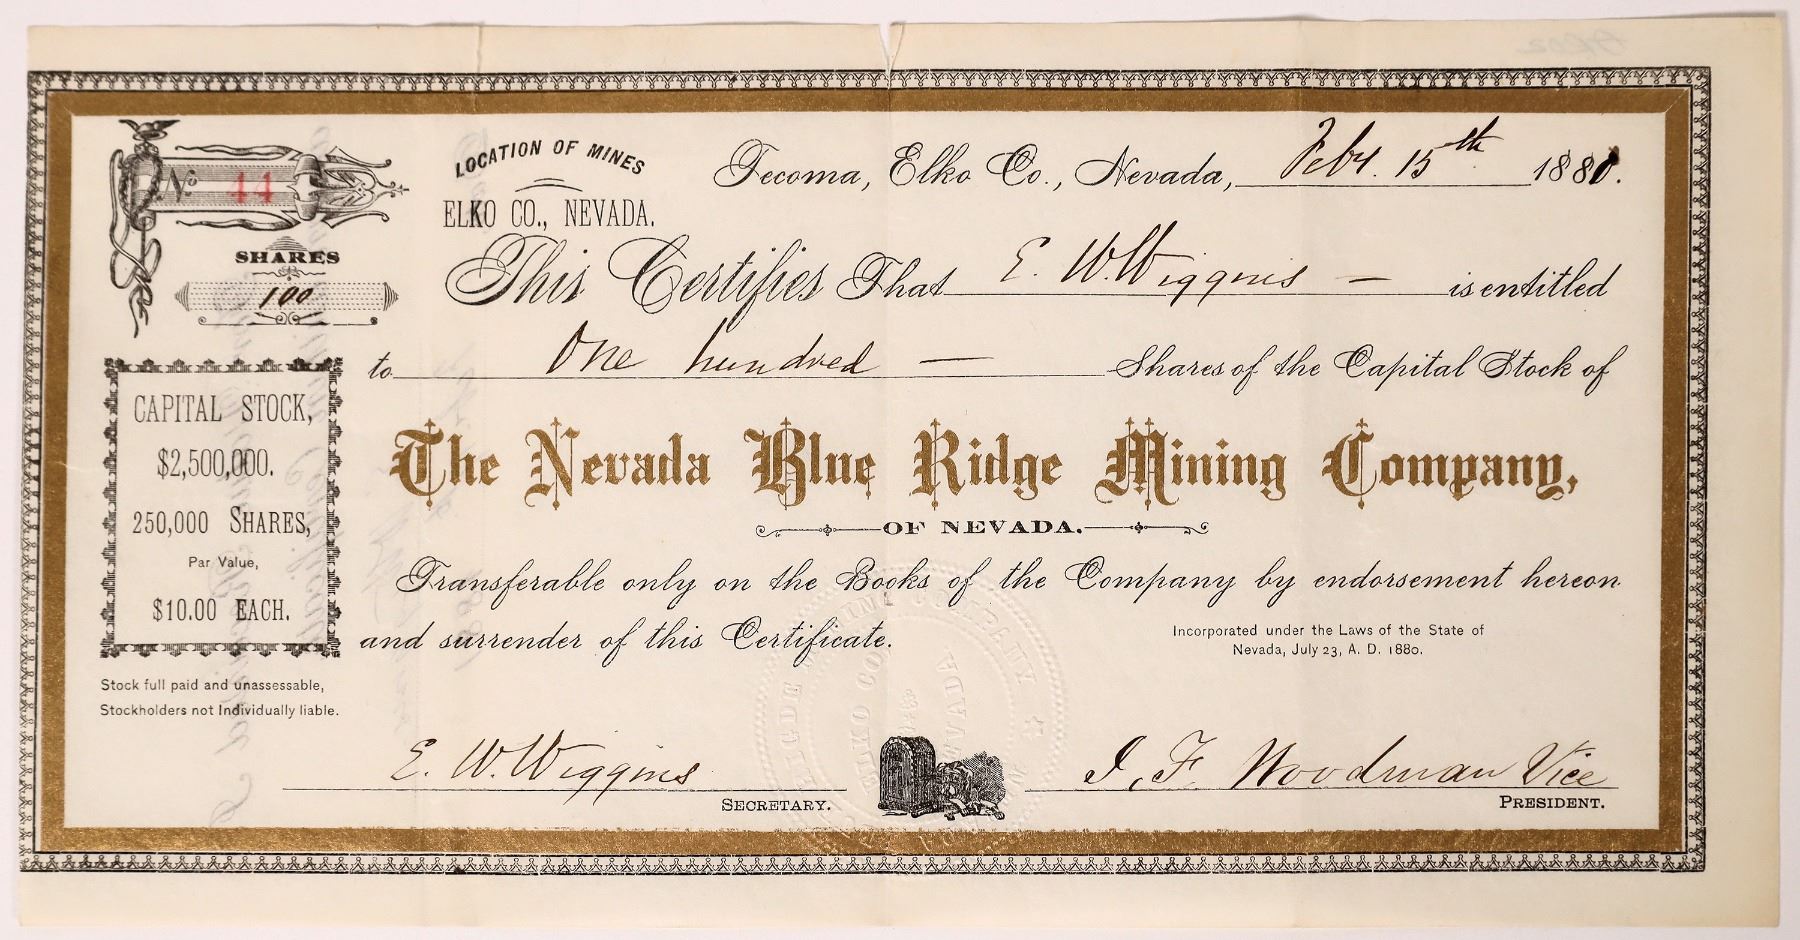 No 44
SHARES
100
LOCATION OF MINES
ELKO CO., NEVADA.
Tecoma, Elko Co., Nevada, Feby. 15th 1881.
This Certifies That E. W. Wiggins — is entitled
to One hundred — Shares of the Capital Stock of
The Nevada Blue Ridge Mining Company,
OF NEVADA.
CAPITAL STOCK,
$2,500,000.
250,000 SHARES,
Par Value,
$10.00 EACH.
Transferable only on the Books of the Company by endorsement hereon
and surrender of this Certificate.
Incorporated under the Laws of the State of
Nevada, July 23, A. D. 1880.
Stock full paid and unassessable,
Stockholders not Individually liable.
E. W. Wiggins
SECRETARY.
J. F. Woodman Vice
PRESIDENT.